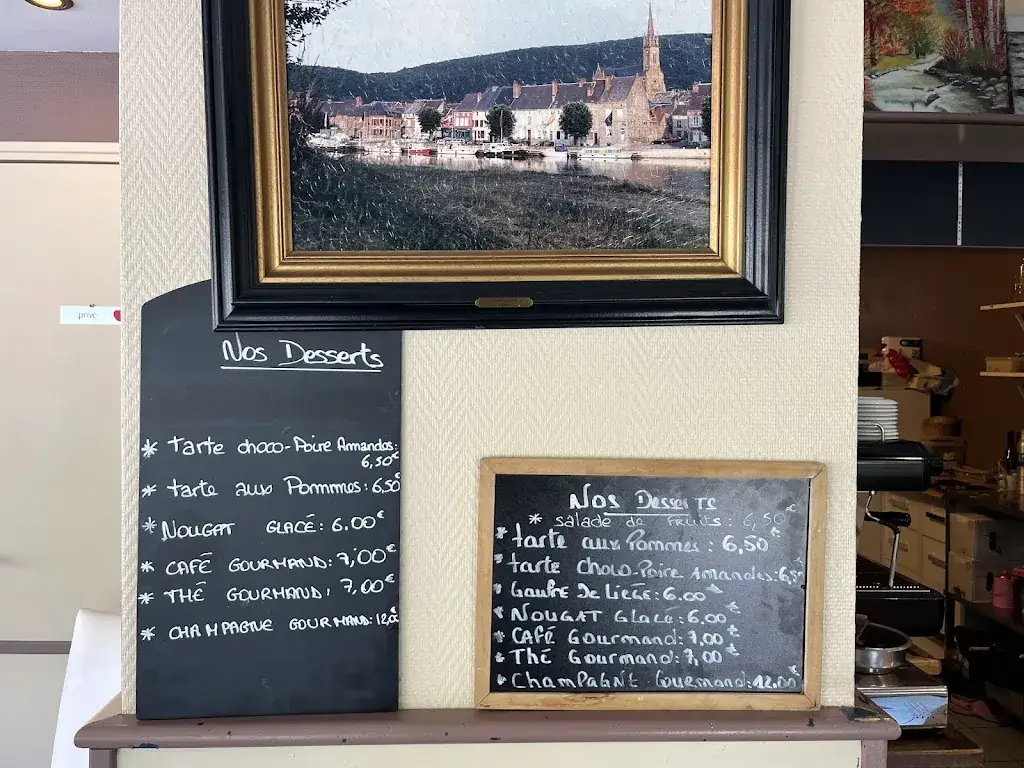 privé
Nos Desserts
* tarte choco-Poire Amandes:
6,50€
* tarte aux Pommes: 6,50
* NOUGAT GLACÉ: 6.00€
* CAFÉ GOURMAND: 7,00€
* THÉ GOURMAND: 7,00€
* CHAMPAGNE GOURMAND: 12,00€
Nos Desserts
* salade de fruits: 6,50€
* tarte aux Pommes: 6,50€
* tarte choco-Poire Amandes: 6,50
* Gaufre De Liège: 6.00€
* NOUGAT Glacé: 6.00€
* CAFÉ Gourmand: 7,00€
* Thé Gourmand: 7,00€
* ChamPAGNE Gourmand: 12.00€